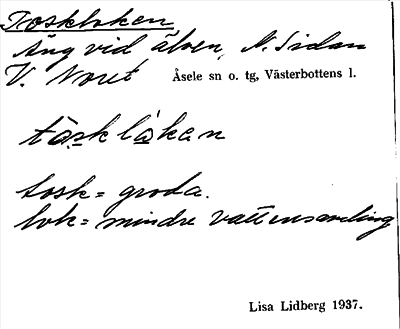 Toskloken
Äng vid älven, N. Sidan
V. Noret Åsele sn o. tg, Västerbottens l.
tåsklåkan
tosk = groda.
lok = mindre vattensamling
Lisa Lidberg 1937.